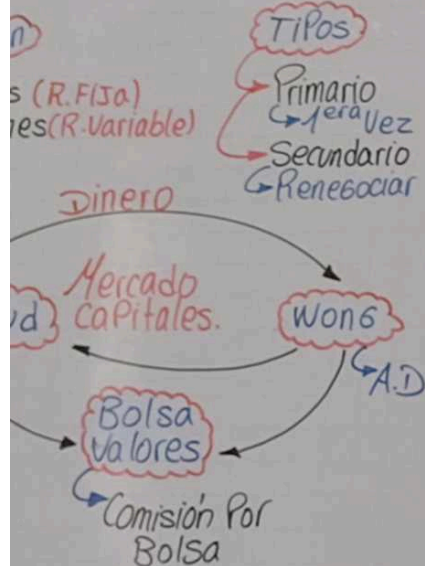 TiPos
s (R.Fija)
es(R.Variable)
Primario
1era Vez
Secundario
Renegociar
Dinero
Mercado
CaPitales.
ud
Wong
A.D
Bolsa
Valores
Comisión Por
Bolsa